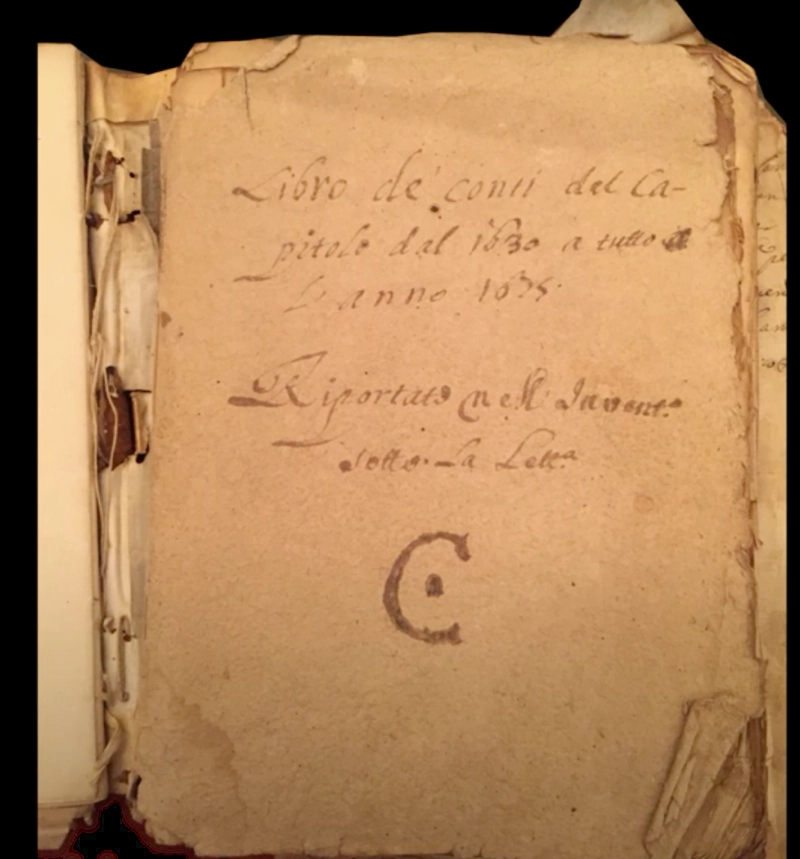 Libro de' conti del Ca-
pitolo dal 1630 a tutto
L'anno 1675
Riportato nell' Invent.o
sotto. La Lett.a
C